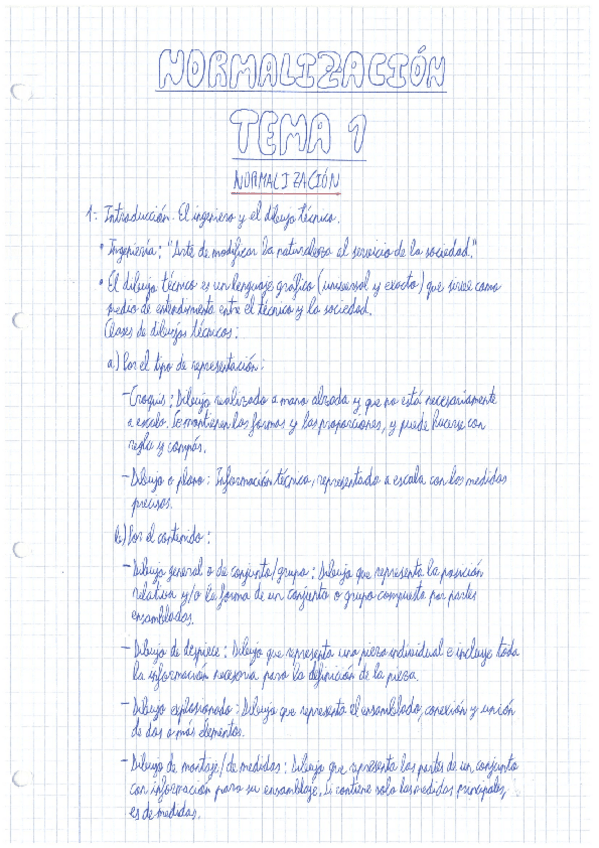 NORMALIZACIÓN
TEMA 1
NORMALIZACIÓN
1.- Introducción. El ingeniero y el dibujo técnico.
• Ingeniería: "Arte de modificar la naturaleza al servicio de la sociedad."
• El dibujo técnico es un lenguaje gráfico (universal y exacto) que sirve como
medio de entendimiento entre el técnico y la sociedad.
Clases de dibujos técnicos:
a) Por el tipo de representación:
- Croquis: Dibujo realizado a mano alzada y que no está necesariamente
a escala. Se mantienen las formas y las proporciones, y puede hacerse con
regla y compás.
- Dibujo o plano: Información técnica, representada a escala con las medidas
precisas.
b) Por el contenido:
- Dibujo general o de conjunto/grupo: Dibujo que representa la posición
relativa y/o la forma de un conjunto o grupo compuesto por partes
ensambladas.
- Dibujo de despiece: Dibujo que representa una pieza individual e incluye toda
la información necesaria para la definición de la pieza.
- Dibujo explosionado: Dibujo que representa el ensamblado, conexión y unión
de dos o más elementos.
- Dibujo de montaje/de medidas: Dibujo que representa las partes de un conjunto
con información para su ensamblaje. Si contiene solo las medidas principales,
es de medidas.